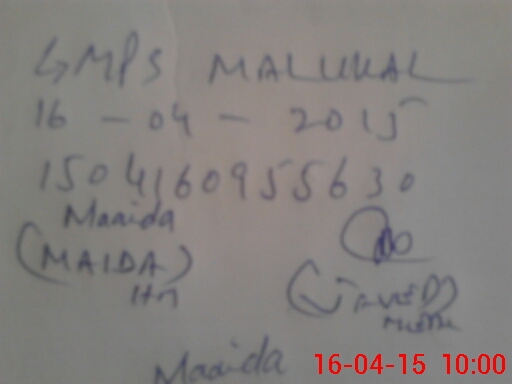 GMPS MALUKAL
16 - 04 - 2015
150416095 5630
Maaida
(MAIDA)
HM
(JAVED)
Maaida
16-04-15 10:00